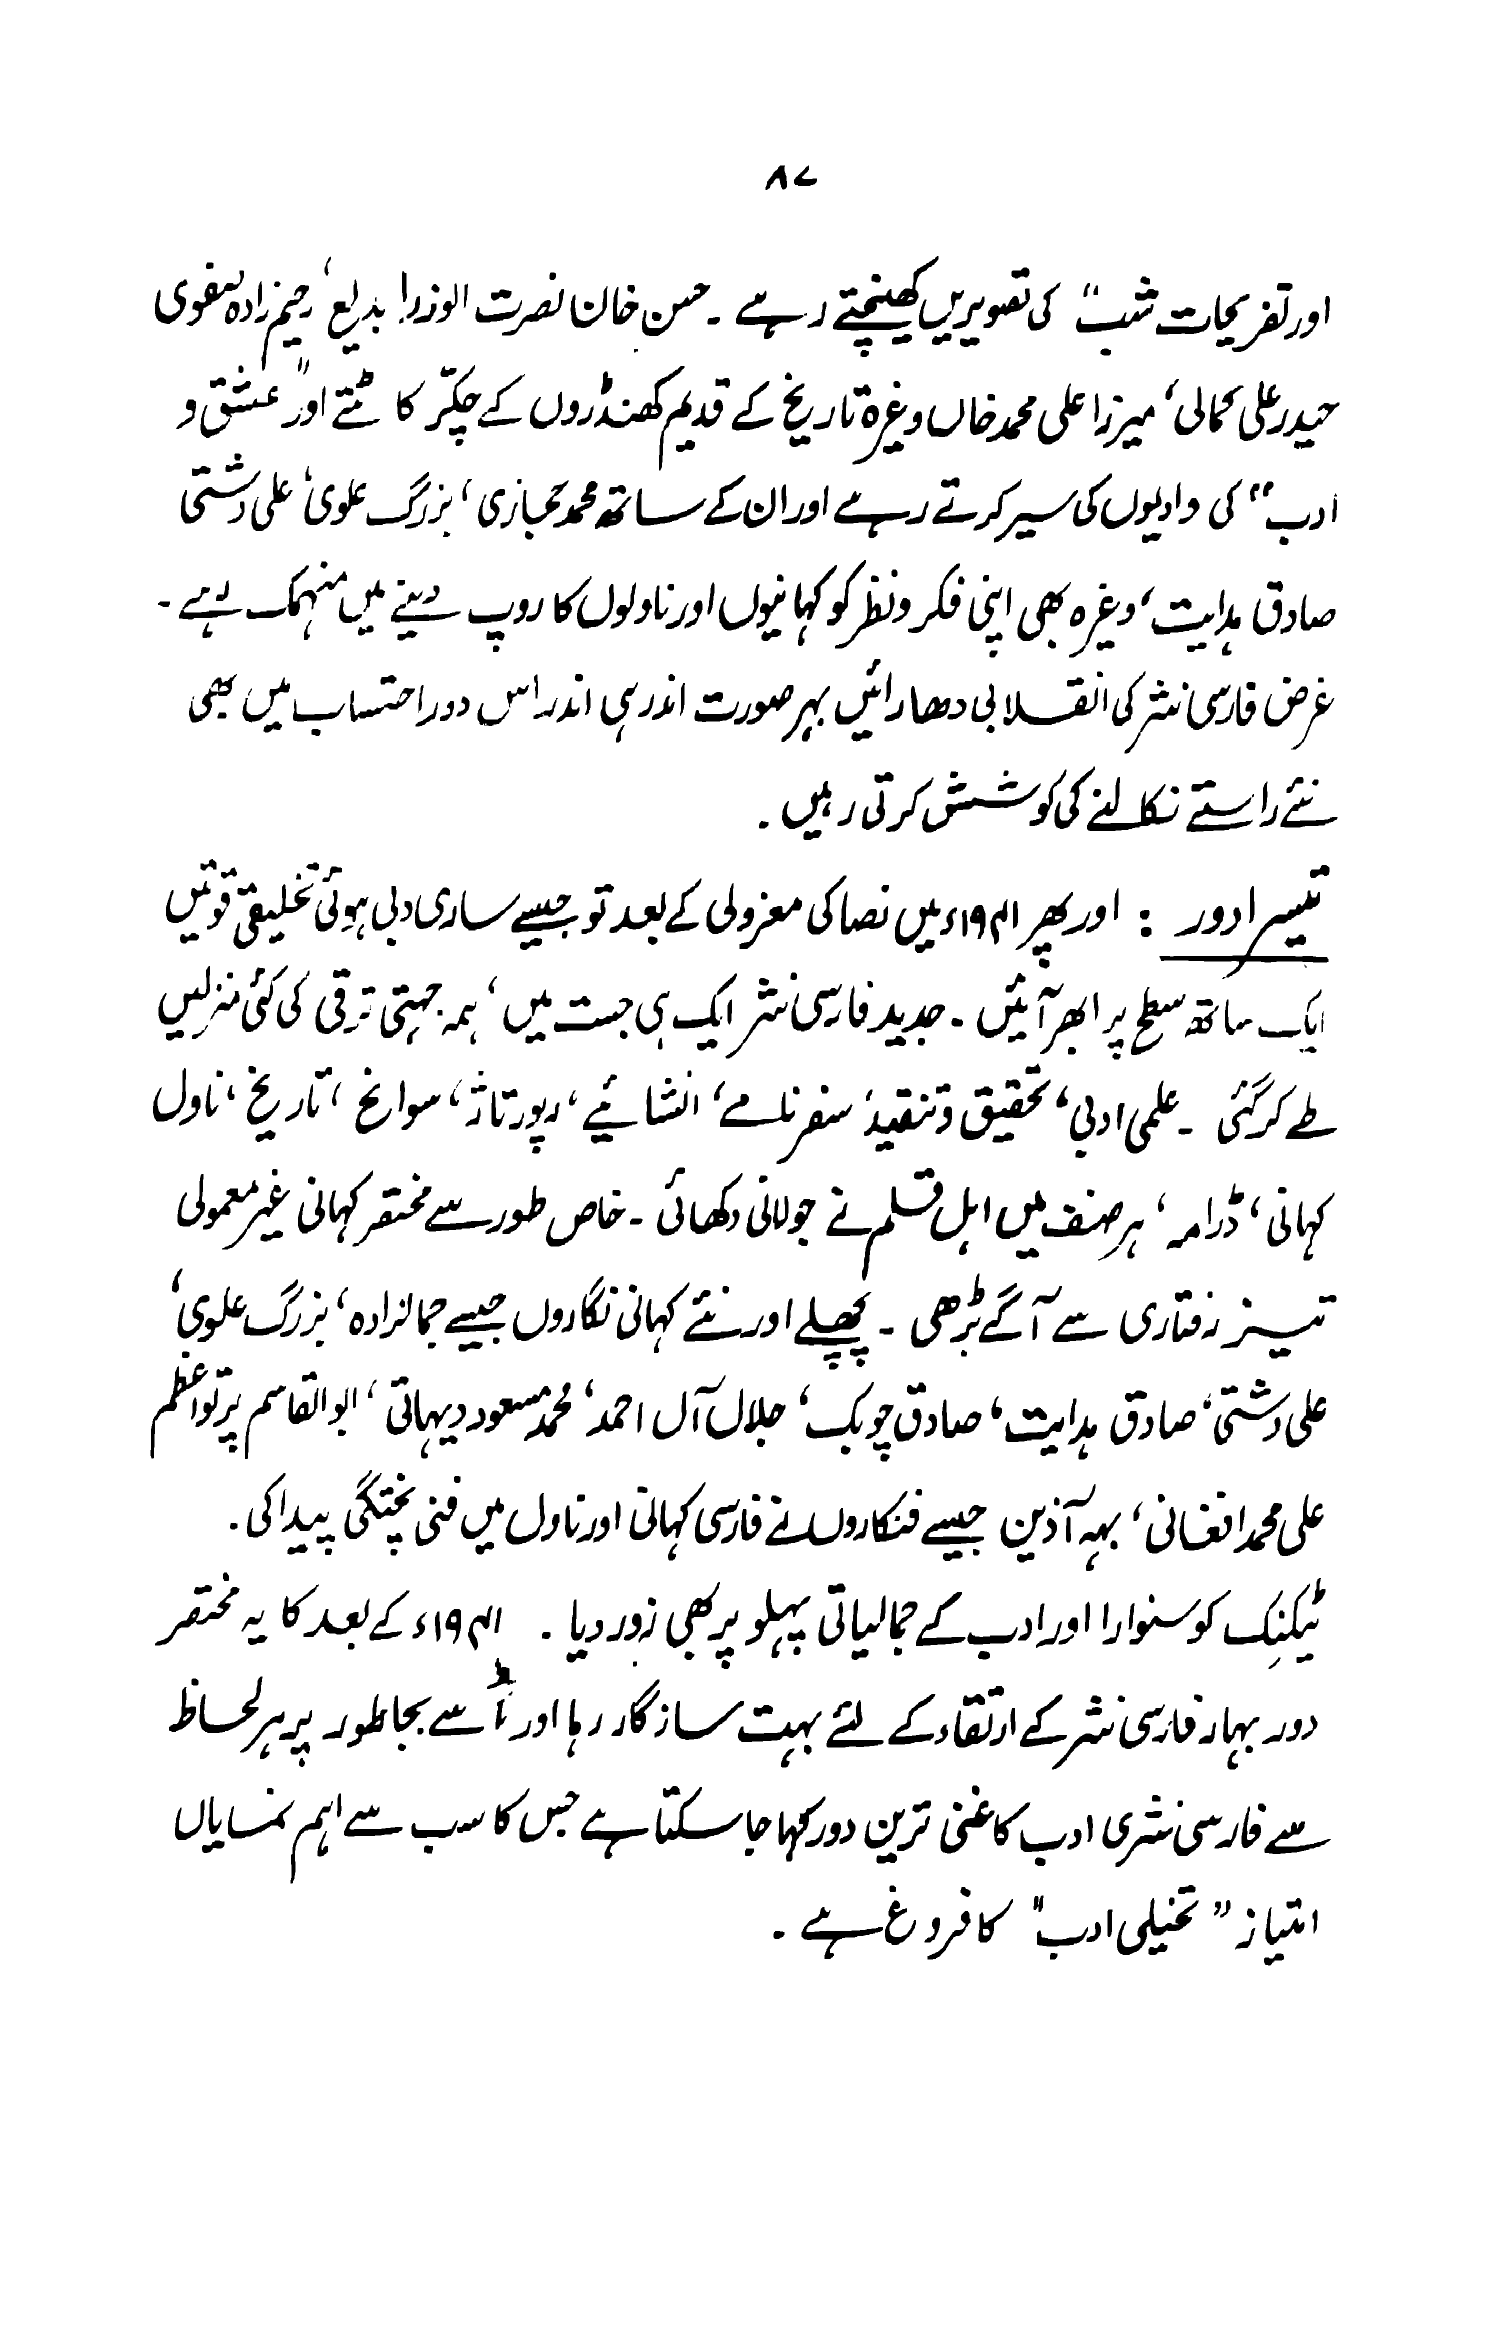 ۸۷
اور تفریحات شب" کی تصویریں کھینچتے رہے ۔ حسن خان نصرت الوزرا بدیع، رحیم زادہ صفوی
حیدر علی کمالی، میرزا علی محمد خاں وغیرہ تاریخ کے قدیم کھنڈروں کے چکّر کاٹتے اور "عشق و
ادب" کی وادیوں کی سیر کرتے رہے اور ان کے ساتھ محمد حجازی، بزرگ علوی، علی دشتی
صادق ہدایت، وغیرہ بھی اپنی فکر و نظر کو کہانیوں اور ناولوں کا روپ دینے میں منہمک رہے ۔
غرض فارسی نثر کی انقلابی دھارائیں بہر صورت اندر ہی اندر اس دور احتساب میں بھی
نئے راستے نکالنے کی کوشش کرتی رہیں ۔
تیسرا دور : اور پھر ۱۹۴۱ء میں رضا کی معزولی کے بعد تو جیسے ساری دبی ہوئی تخلیقی قوتیں
ایک ساتھ سطح پر ابھر آئیں ۔ جدید فارسی نثر ایک ہی جست میں، ہمہ جہتی ترقی کی کئی منزلیں
طے کر گئی ۔ علمی ادبی، تحقیق و تنقید، سفرنامے، انشائیے، رپورتاژ، سوانح، تاریخ، ناول
کہانی، ڈرامہ، ہر صنف میں اہل قلم نے جولانی دکھائی ۔ خاص طور سے مختصر کہانی غیر معمولی
تیز رفتاری سے آگے بڑھی ۔ پچھلے اور نئے کہانی نگاروں جیسے جمالزادہ، بزرگ علوی،
علی دشتی، صادق ہدایت، صادق چوبک، جلال آل احمد، محمد مسعود دیہاتی، ابوالقاسم پرتو اعظم
علی محمد افغانی، بہہ آذین جیسے فنکاروں نے فارسی کہانی اور ناول میں فنی پختگی پیدا کی ۔
ٹیکنِک کو سنوارا اور ادب کے جمالیاتی پہلو پر بھی زور دیا ۔ ۱۹۴۱ء کے بعد کا یہ مختصر
دور بہار فارسی نثر کے ارتقاء کے لئے بہت سازگار رہا اور اسے بجا طور پر ہر لحاظ
سے فارسی نثری ادب کا غنی ترین دور کہا جا سکتا ہے جس کا سب سے اہم نمایاں
امتیاز "تخیلی ادب" کا فروغ ہے ۔